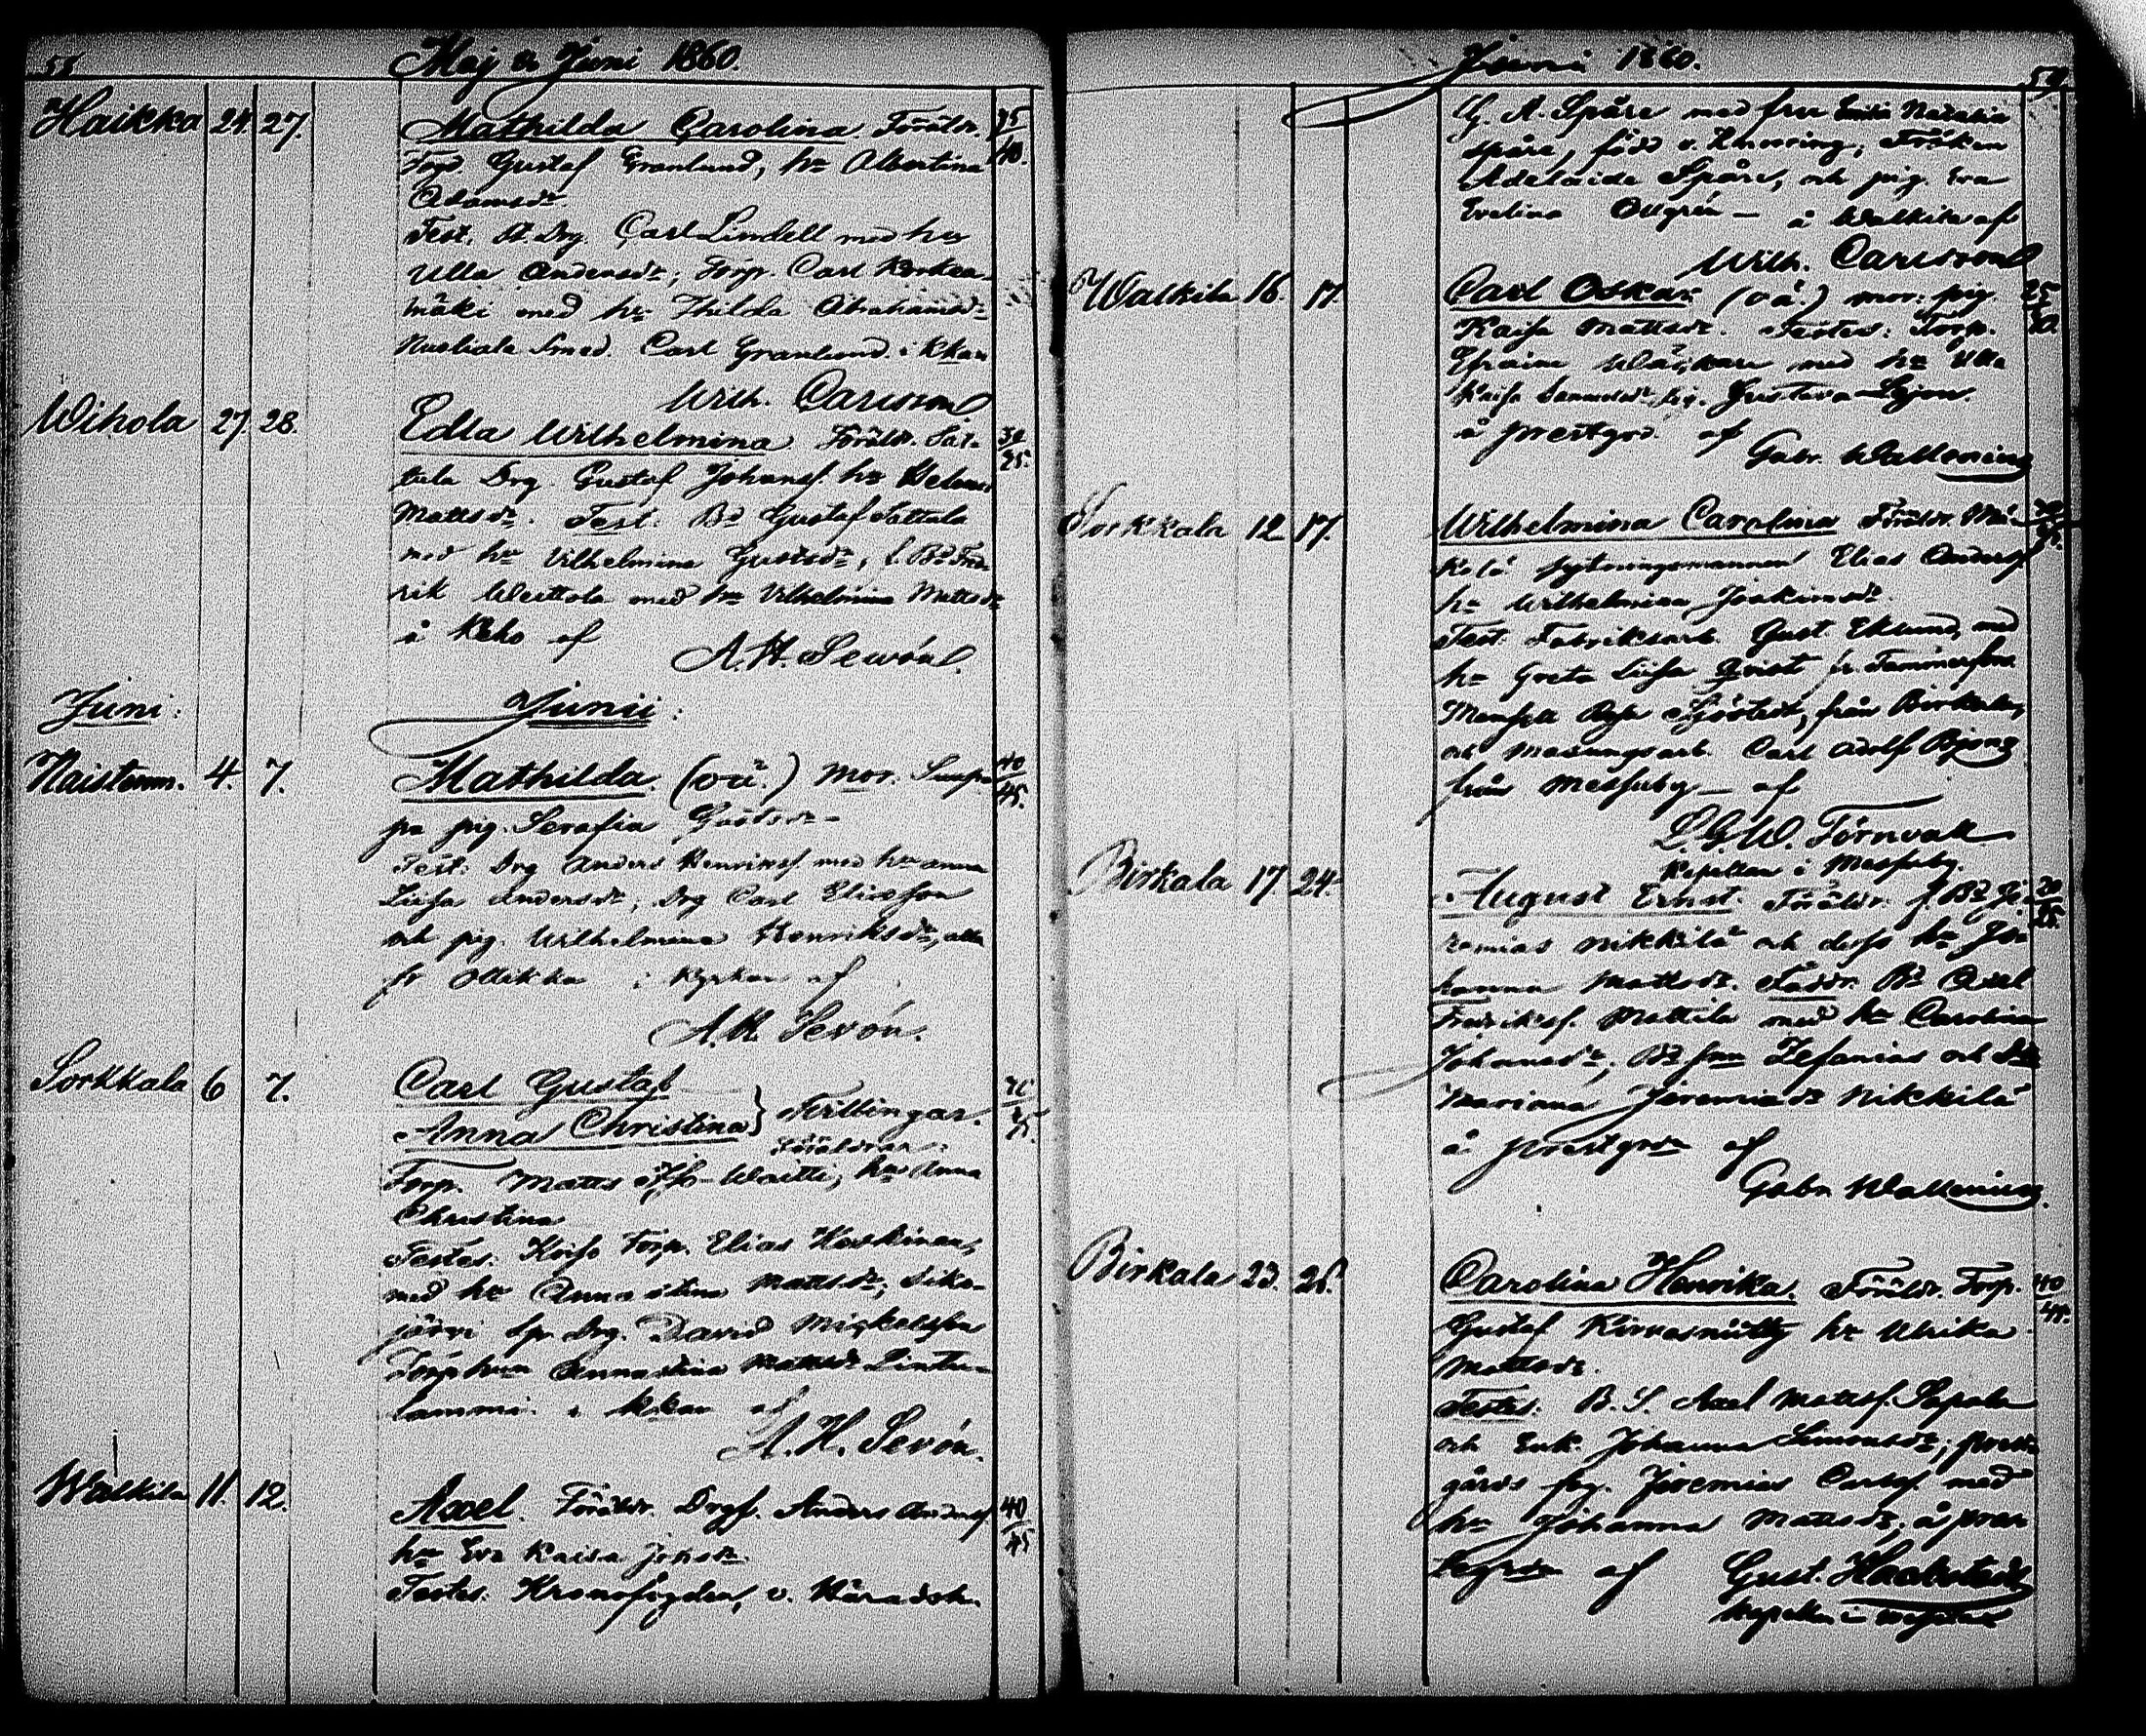 55
Maj & Juni 1860.
Haikka 24. 27. Mathilda Carolina. Föräldr. 35/40.
Torp. Gustaf Granlund, hu Albertina
Adamsdr.
Test. Drg. Carl Lindell med hu
Ulla Andersdr; Torp. Carl Korkea-
mäki med hu Thilda Abrahamsdr
Smed. Carl Granlund. i Kkan
Wilh. Carlsson
Wihola 27. 28. Edla Wilhelmina. Föräldr. Sat-
tula Drg. Gustaf Johansf. hu Helena
Mattsdr. Test. Bd Gustaf Sattula
med hu Vilhelmina Gustsdr, f. Bd Fred-
rik Weittola med hu Vilhelmina Mattsdr
å Keho af
A. H. Sevón.
Juni: Junii:
Naistenm. 4. 7. Mathilda. (oä.) Mor. 40/45.
pig. Serafia Gustsdr
Test. Drg Anders Henriksf. med hu Anna
Liisa Andersdr, Drg Carl Eliesson
och pig. Wilhelmina Henriksdr, alla
fr Ollikka i Kyrkan af
A. H. Sevón.
Sorkkala 6 7. Carl Gustaf
Anna Christina } Tvillingar.
Föräldrar:
Torp. Matts Waitti, hu Anna
Christina
Testes: Torp. Elias Koskinen,
med hu Anna Stina Mattsdr, Sika-
järvi Drg. David Mickelsson
Torp.hun Anna Stina Mattsdr Lintu-
lammi. i kkan af
A. H. Sevón.
Walkila 11. 12. Axel. Föräldr. Drgf. Anders Andersf 40/45
hu Eva Kaisa Johsdr.
Testes: Kronofogden, v. Häradsh.
Juni 1860.
G. A. Spåre med fru Natalia
Spåre, född v. Knorring, Fröken
Adelaide Spåre, och pig. Eva
Evelina Öllgrén — å Walkila af
Wilh. Carlsson
Walkila 16. 17. Carl Oskar (oä.) mor: pig 25/30.
Kaisa Mattsdr. Testes: Torp.
Efraim med hu Ulla
Kaisa Samuelsdr, pig. Gustava
å prestgrd. af
Gabr. Wallenius
Sorkkala 12 17. Wilhelmina Carolina Föräldr. Mä-
kelä Elias Andersf
hu Wilhelmina Joakimsdr.
Test. Fabriksarb. Gust. Eklund, med
hu Greta Liisa Qvist fr. Tammerfors
Mamsell Rosa från Birkala,
och masungsarb. Carl Adolf
från Messuby — af
L. G. W. Törnvall
Kapellan i Messuby.
Birkala 17 24. August Ernst. Föräldr. f. Bd Je-
remias Nikkilä och dess hu Jo-
hanna Mattsdr. Faddr. Bd Axel
Fredriksf. Mattila med hu Carolina
Johansdr, Bd son Zefanias och
Mariana Jeremiasdr Nikkilä
å prestgrdn af
Gabr. Wallenius.
Birkala 23. 25. Carolina Henrika. Föräldr. Torp. 40/45.
Gustaf hu Ulrika
Mattsdr.
Testes: B. S. Axel Mattsf. Sepala
och Enk. Johanna Simonsdr; prest-
gårds Jeremias Carlsf. med
hu Johanna Mattsdr, å pres-
tegrdn af Gust.
Kapellan i